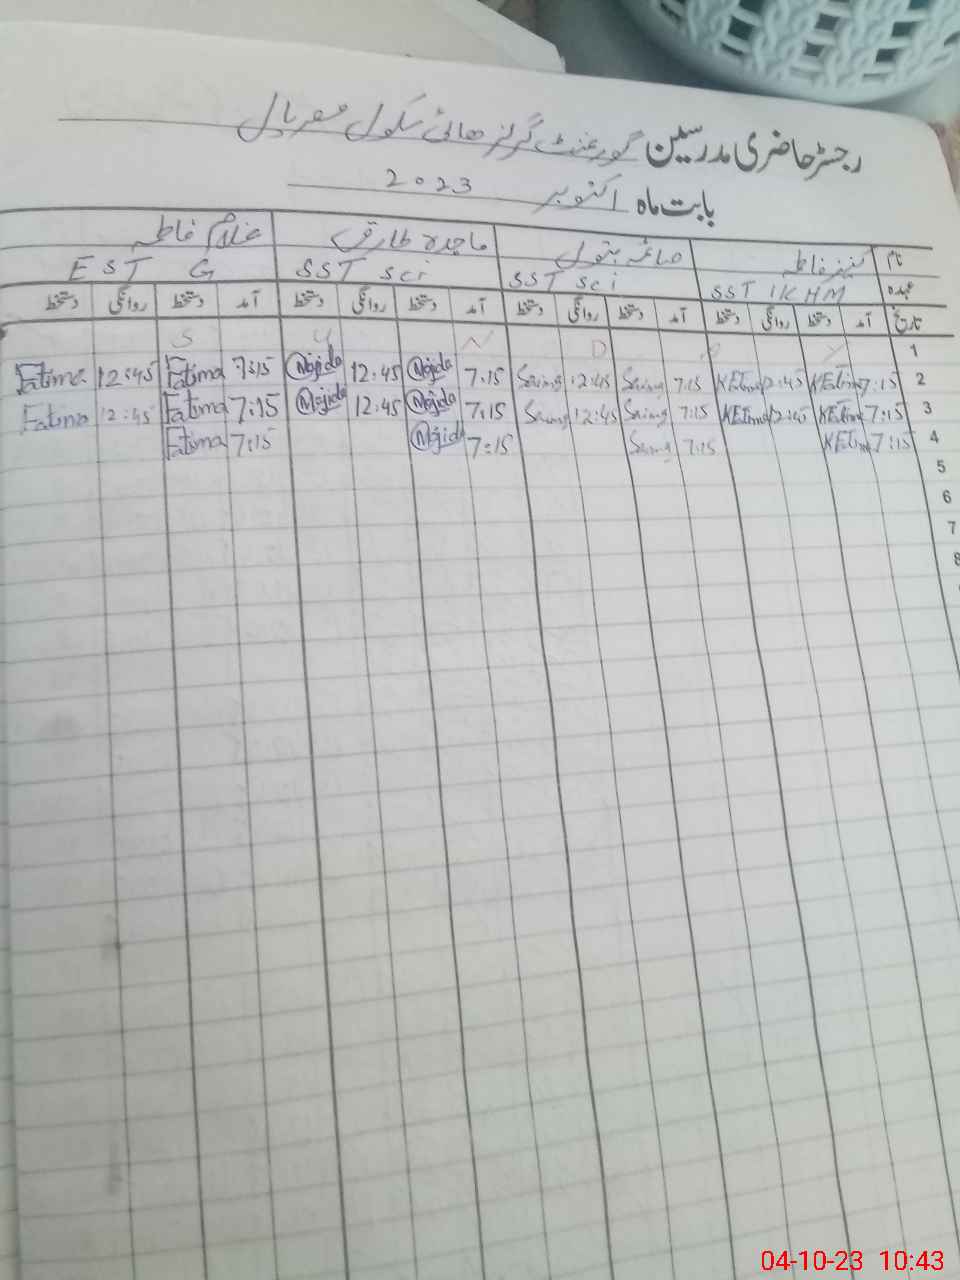 رجسٹر حاضری مدرسین گورنمنٹ گرلز ھائی سکول
بابت ماہ اکتوبر 2023
نام کنیز فاطمہ صائمہ بتول ماجدہ طارق غلام فاطمہ
عہدہ SST IK HM SST Sci SST Sci EST G
تاریخ آمد دستخط روانگی دستخط آمد دستخط روانگی دستخط آمد دستخط روانگی دستخط آمد دستخط روانگی دستخط
1 S U N D A Y
Fatima 12:45 Fatima 7:15 Majida 12:45 Majida 7:15 Saima 12:45 Saima 7:15 KFatima 12:45 KFatima 7:15 2
Fatima 12:45 Fatima 7:15 Majida 12:45 Majida 7:15 Saima 12:45 Saima 7:15 KFatima 12:45 KFatima 7:15 3
Fatima 7:15 Majida 7:15 Saima 7:15 KFatima 7:15 4
5
6
7
8
04-10-23 10:43